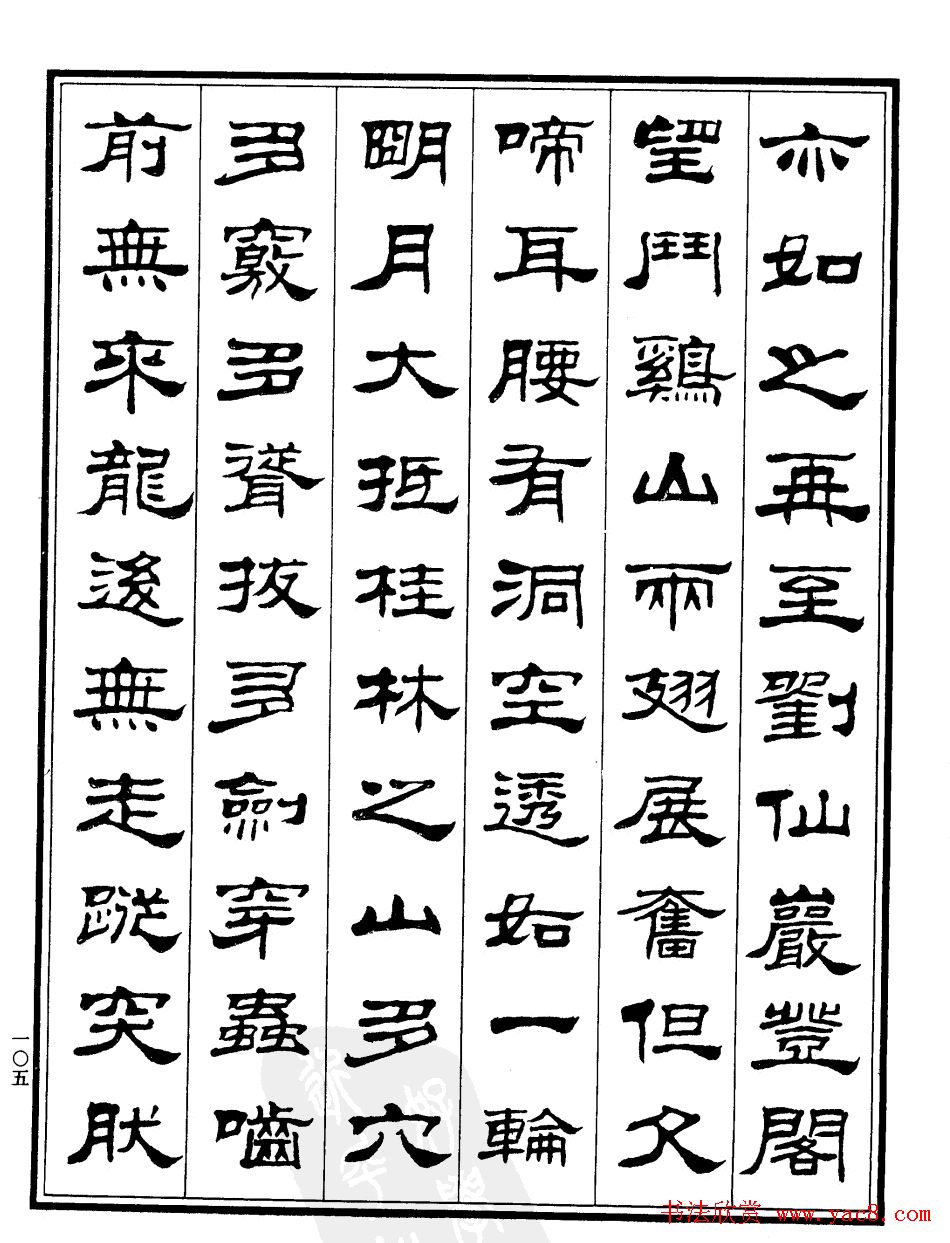 亦如之再至劉仙巖登閣
望鬥鷄山兩翅展奮但欠
啼耳腰有洞空透如一輪
朙月大抵桂林之山多穴
多竅多聳拔多劍穿蟲嚙
前無來龍後無走蹤突肰
一〇五
书法欣赏 www.yac8.com